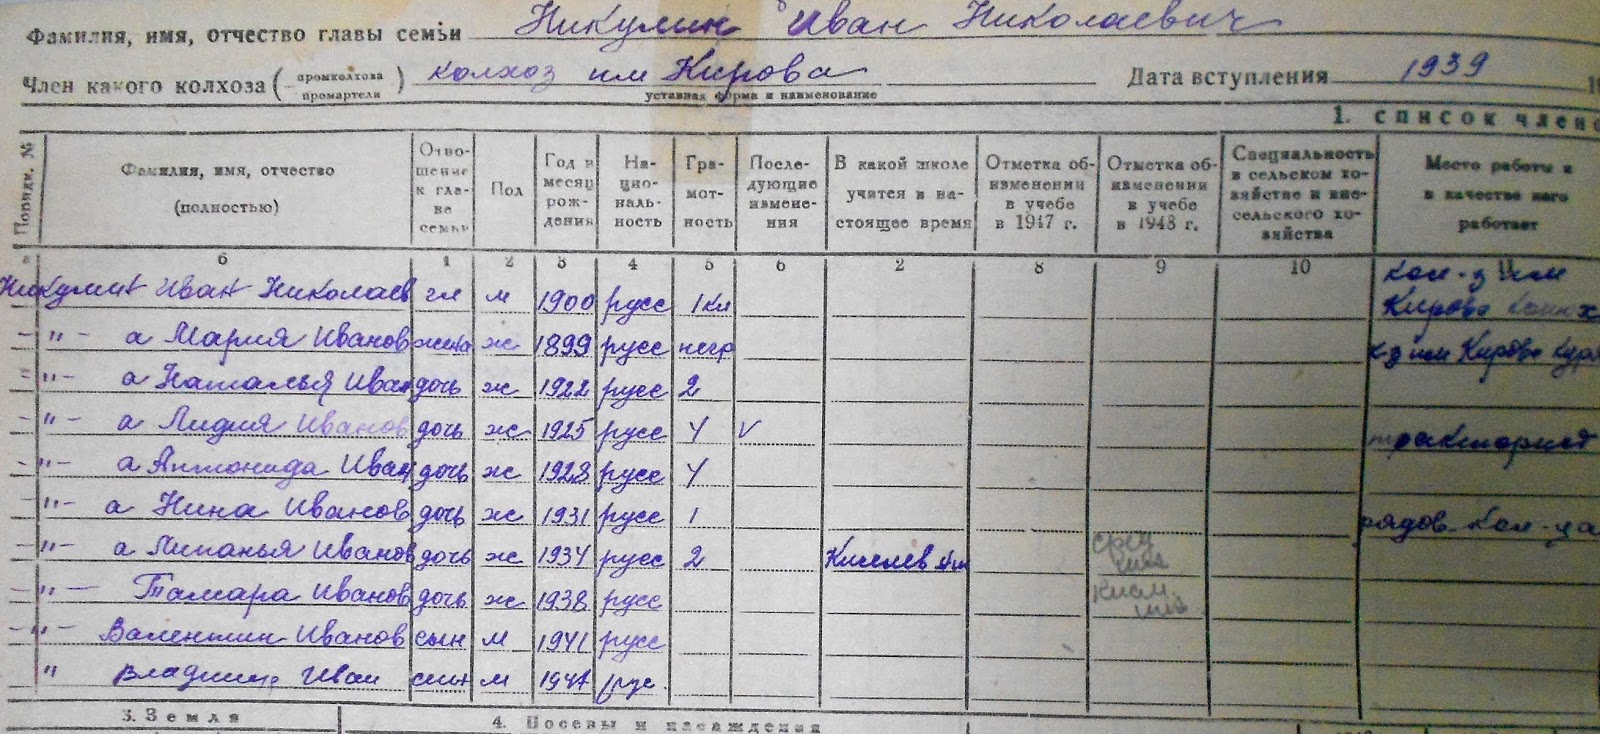 Фамилия, имя, отчество главы семьи Никулин Иван Николаевич
Член какого колхоза (промколхоза промартели) колхоз им Кирова Дата вступления 1939
уставная форма и наименование
1. список члено
Порядк. № Фамилия, имя, отчество (полностью) Отношение к главе семьи Пол Год и месяц рождения Национальность Грамотность Последующие изменения В какой школе учится в настоящее время Отметка об изменении в учебе в 1947 г. Отметка об изменении в учебе в 1948 г. Специальность в сельском хозяйстве и вне сельского хозяйства Место работы и в качестве кого работает
а б 1 2 3 4 5 6 2 8 9 10 11
Никулин Иван Николаев гл м 1900 русс 1кл кол-з им Кирова конюх
-"- а Мария Иванов жена ж 1899 русс негр к-з им Кирова
-"- а Наталья Иван дочь ж 1922 русс 2
-"- а Лидия Иванов дочь ж 1925 русс 4 V тракторист
-"- а Антонида Иван дочь ж 1928 русс 4
-"- а Нина Иванов дочь ж 1931 русс 1 рядов. кол-ца
-"- а Иванов дочь ж 1934 русс 2 Киселев
-"- Тамара Иванов дочь ж 1938 русс
-"- Валентин Иванов сын м 1941 русс
" Владимир Иван сын м 1947 рус
3. Земля 4. Посевы и насаждения